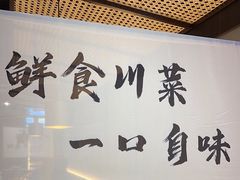 鲜食川菜
一口自味